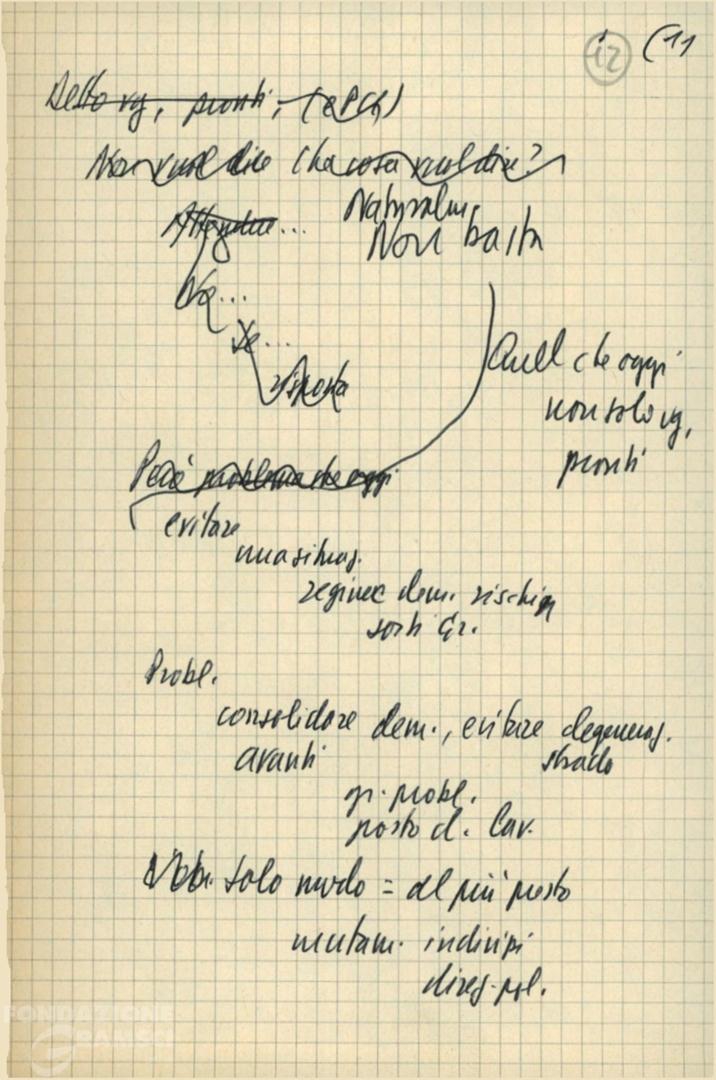 12 (11
Detto vg, pronti, (e PCI)
Non vuol dire Che cosa vuol dire?
Attendere... Naturalm.
Non basta
No...
Se...
risposta
Quell che oggi
non solo vg,
pronti
Però problema che oggi
evitare
una situaz.
regime dem. rischia
sorti Gr.
Probl.
consolidare dem., evitare degeneraz.
avanti strada
gr. probl.
posto cl. lav.
solo modo = al più presto
mutam. indirizzi
direz. pol.
FONDAZIONE
GRAMSCI